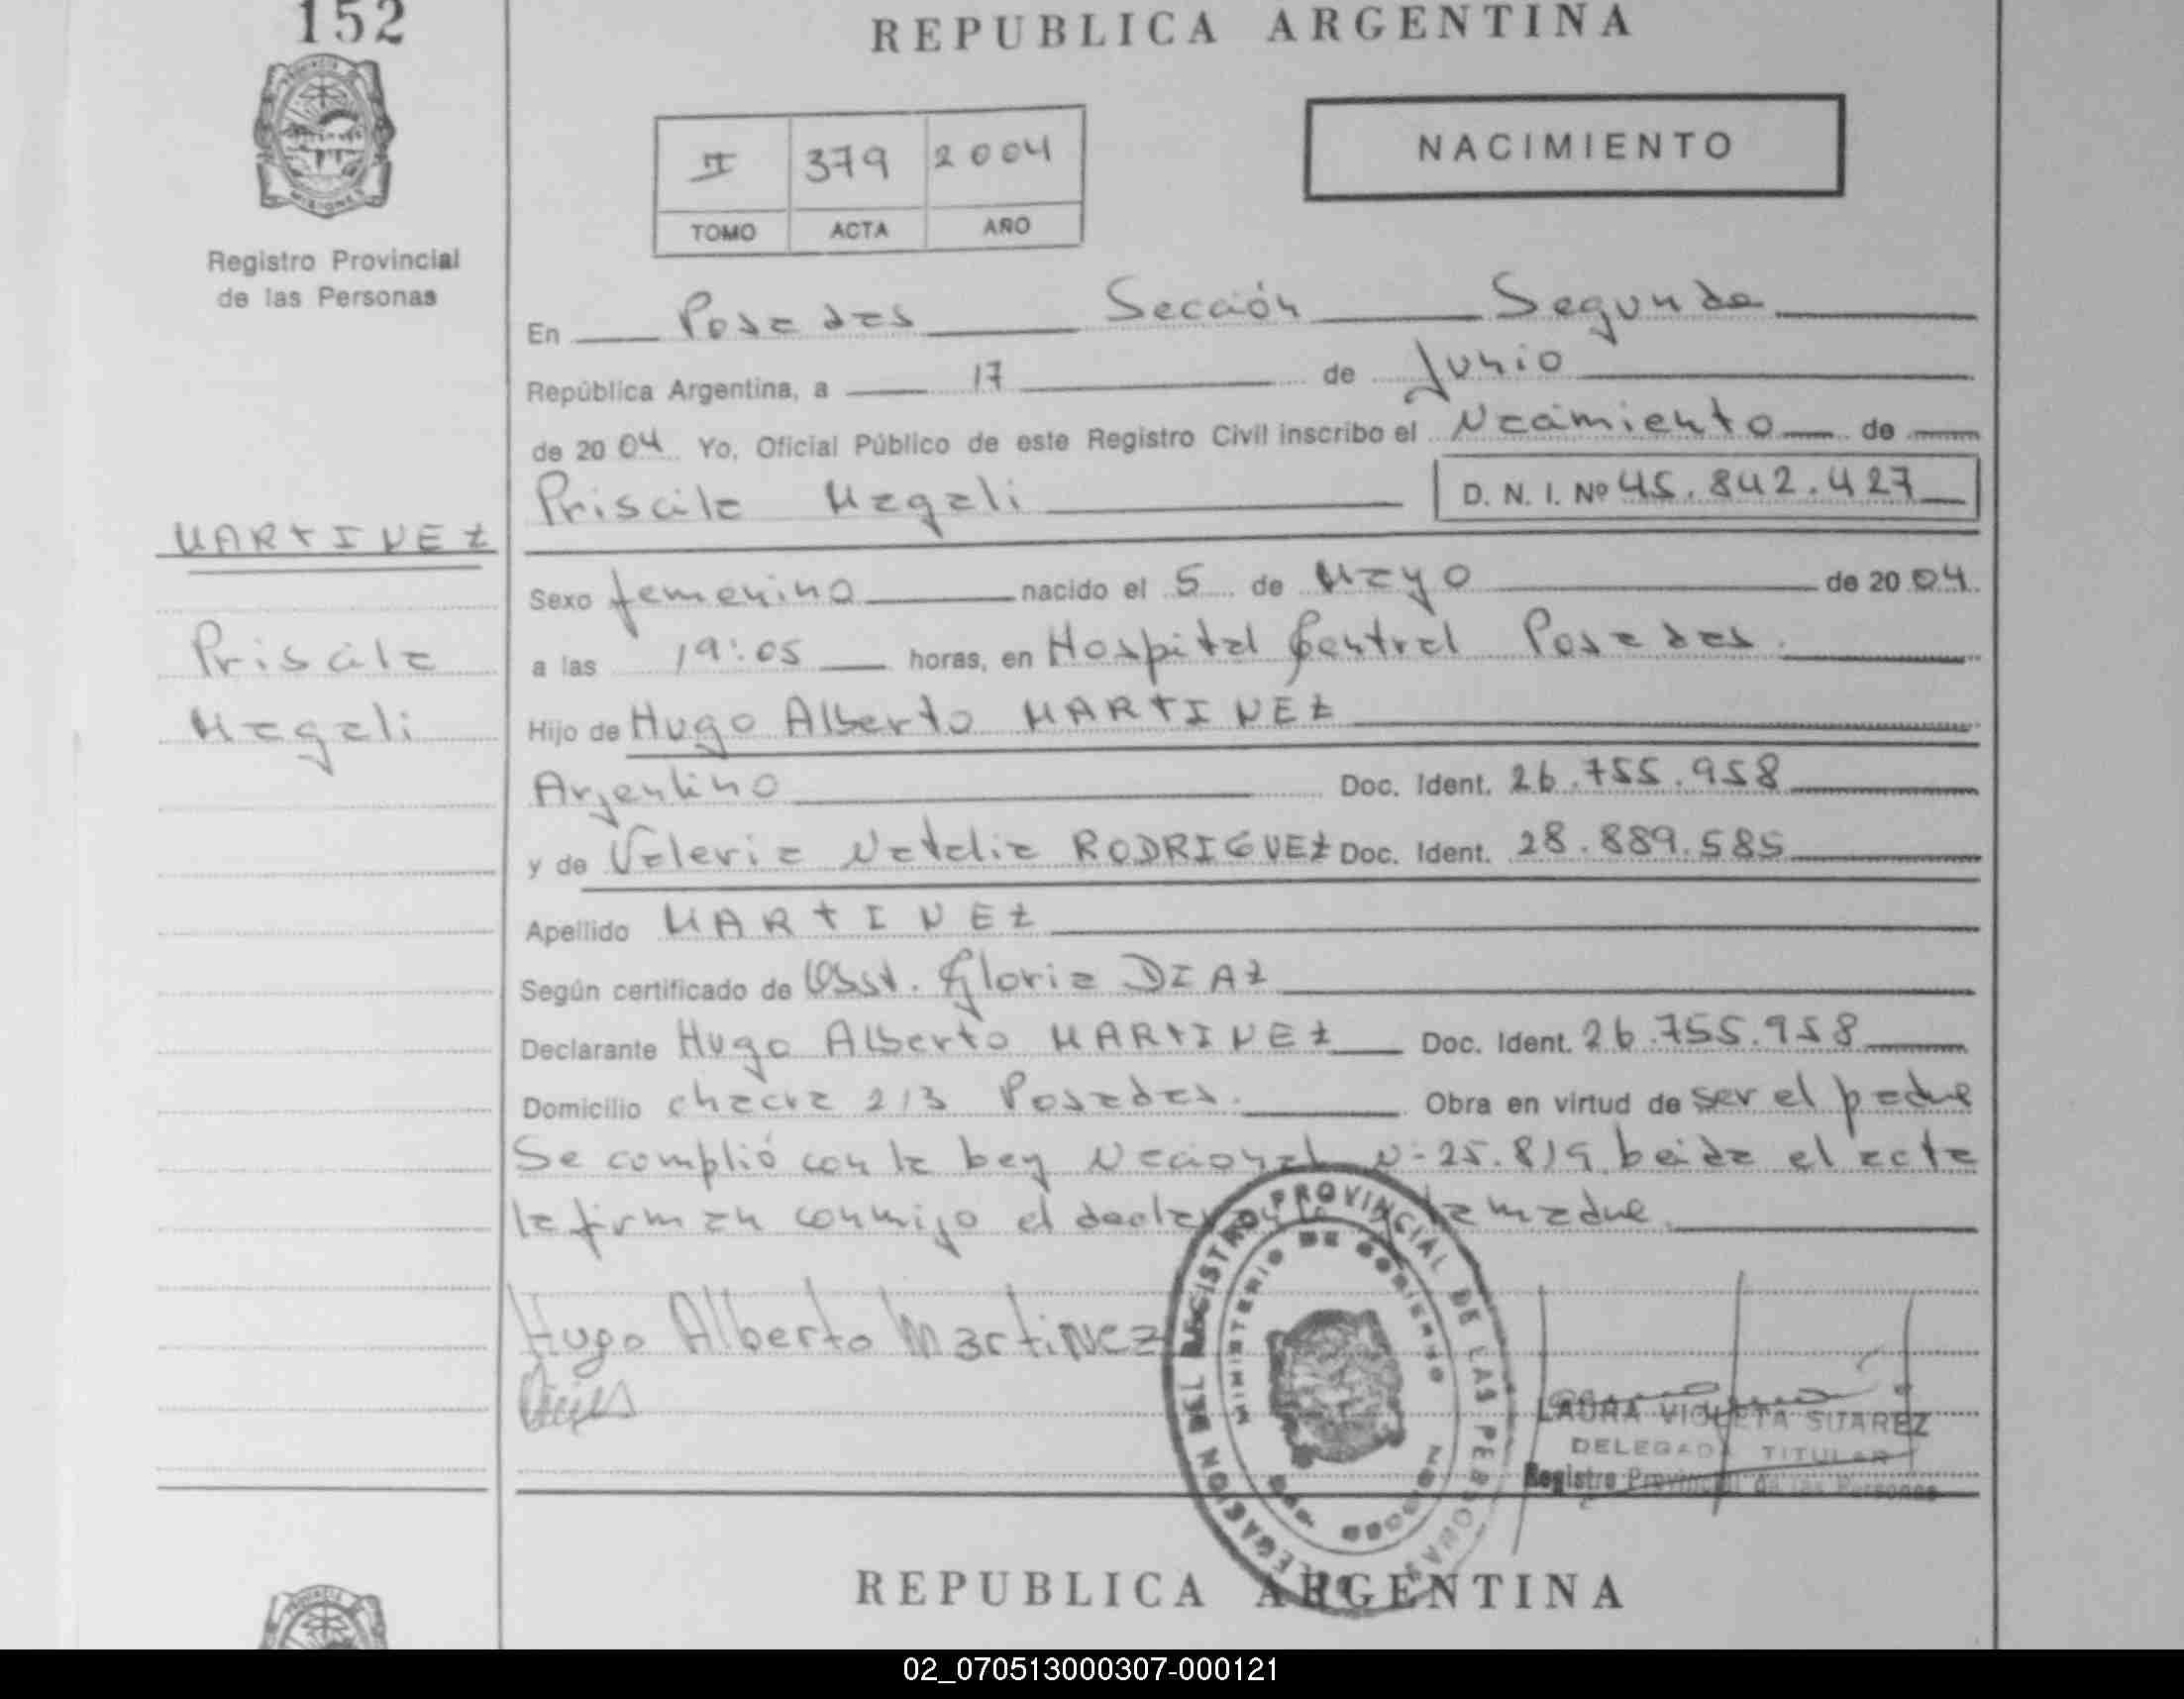 152
REPUBLICA ARGENTINA
NACIMIENTO
II 379 2004
TOMO ACTA AÑO
Registro Provincial
de las Personas
En Posadas Sección Segunda
República Argentina, a 17 de Junio
de 2004 Yo, Oficial Público de este Registro Civil inscribo el Nacimiento de
Priscila Magali D. N. I. Nº 45.842.427
MARTINEZ
Sexo femenino nacido el 5 de Mayo de 2004
Priscila
a las 19:05 horas, en Hospital Central Posadas.
Magali
Hijo de Hugo Alberto MARTINEZ
Argentino Doc. Ident. 26.755.958
y de Valeria Natalia RODRIGUEZ Doc. Ident. 28.889.585
Apellido MARTINEZ
Según certificado de Obst. Gloria DIAZ
Declarante Hugo Alberto MARTINEZ Doc. Ident. 26.755.958
Domicilio chacra 213 Posadas. Obra en virtud de ser el padre
Se complió con la Ley Nacional Nº 25.819. Leida el acta
la firman conmigo el la madre.
Hugo Alberto Martinez
DELEGACION DEL REGISTRO PROVINCIAL DE LAS PERSONAS
MINISTERIO DE GOBIERNO
LAURA VIOLETA SUAREZ
DELEGADA TITULAR
Registro Provincial de las Personas
REPUBLICA ARGENTINA
02_070513000307-000121